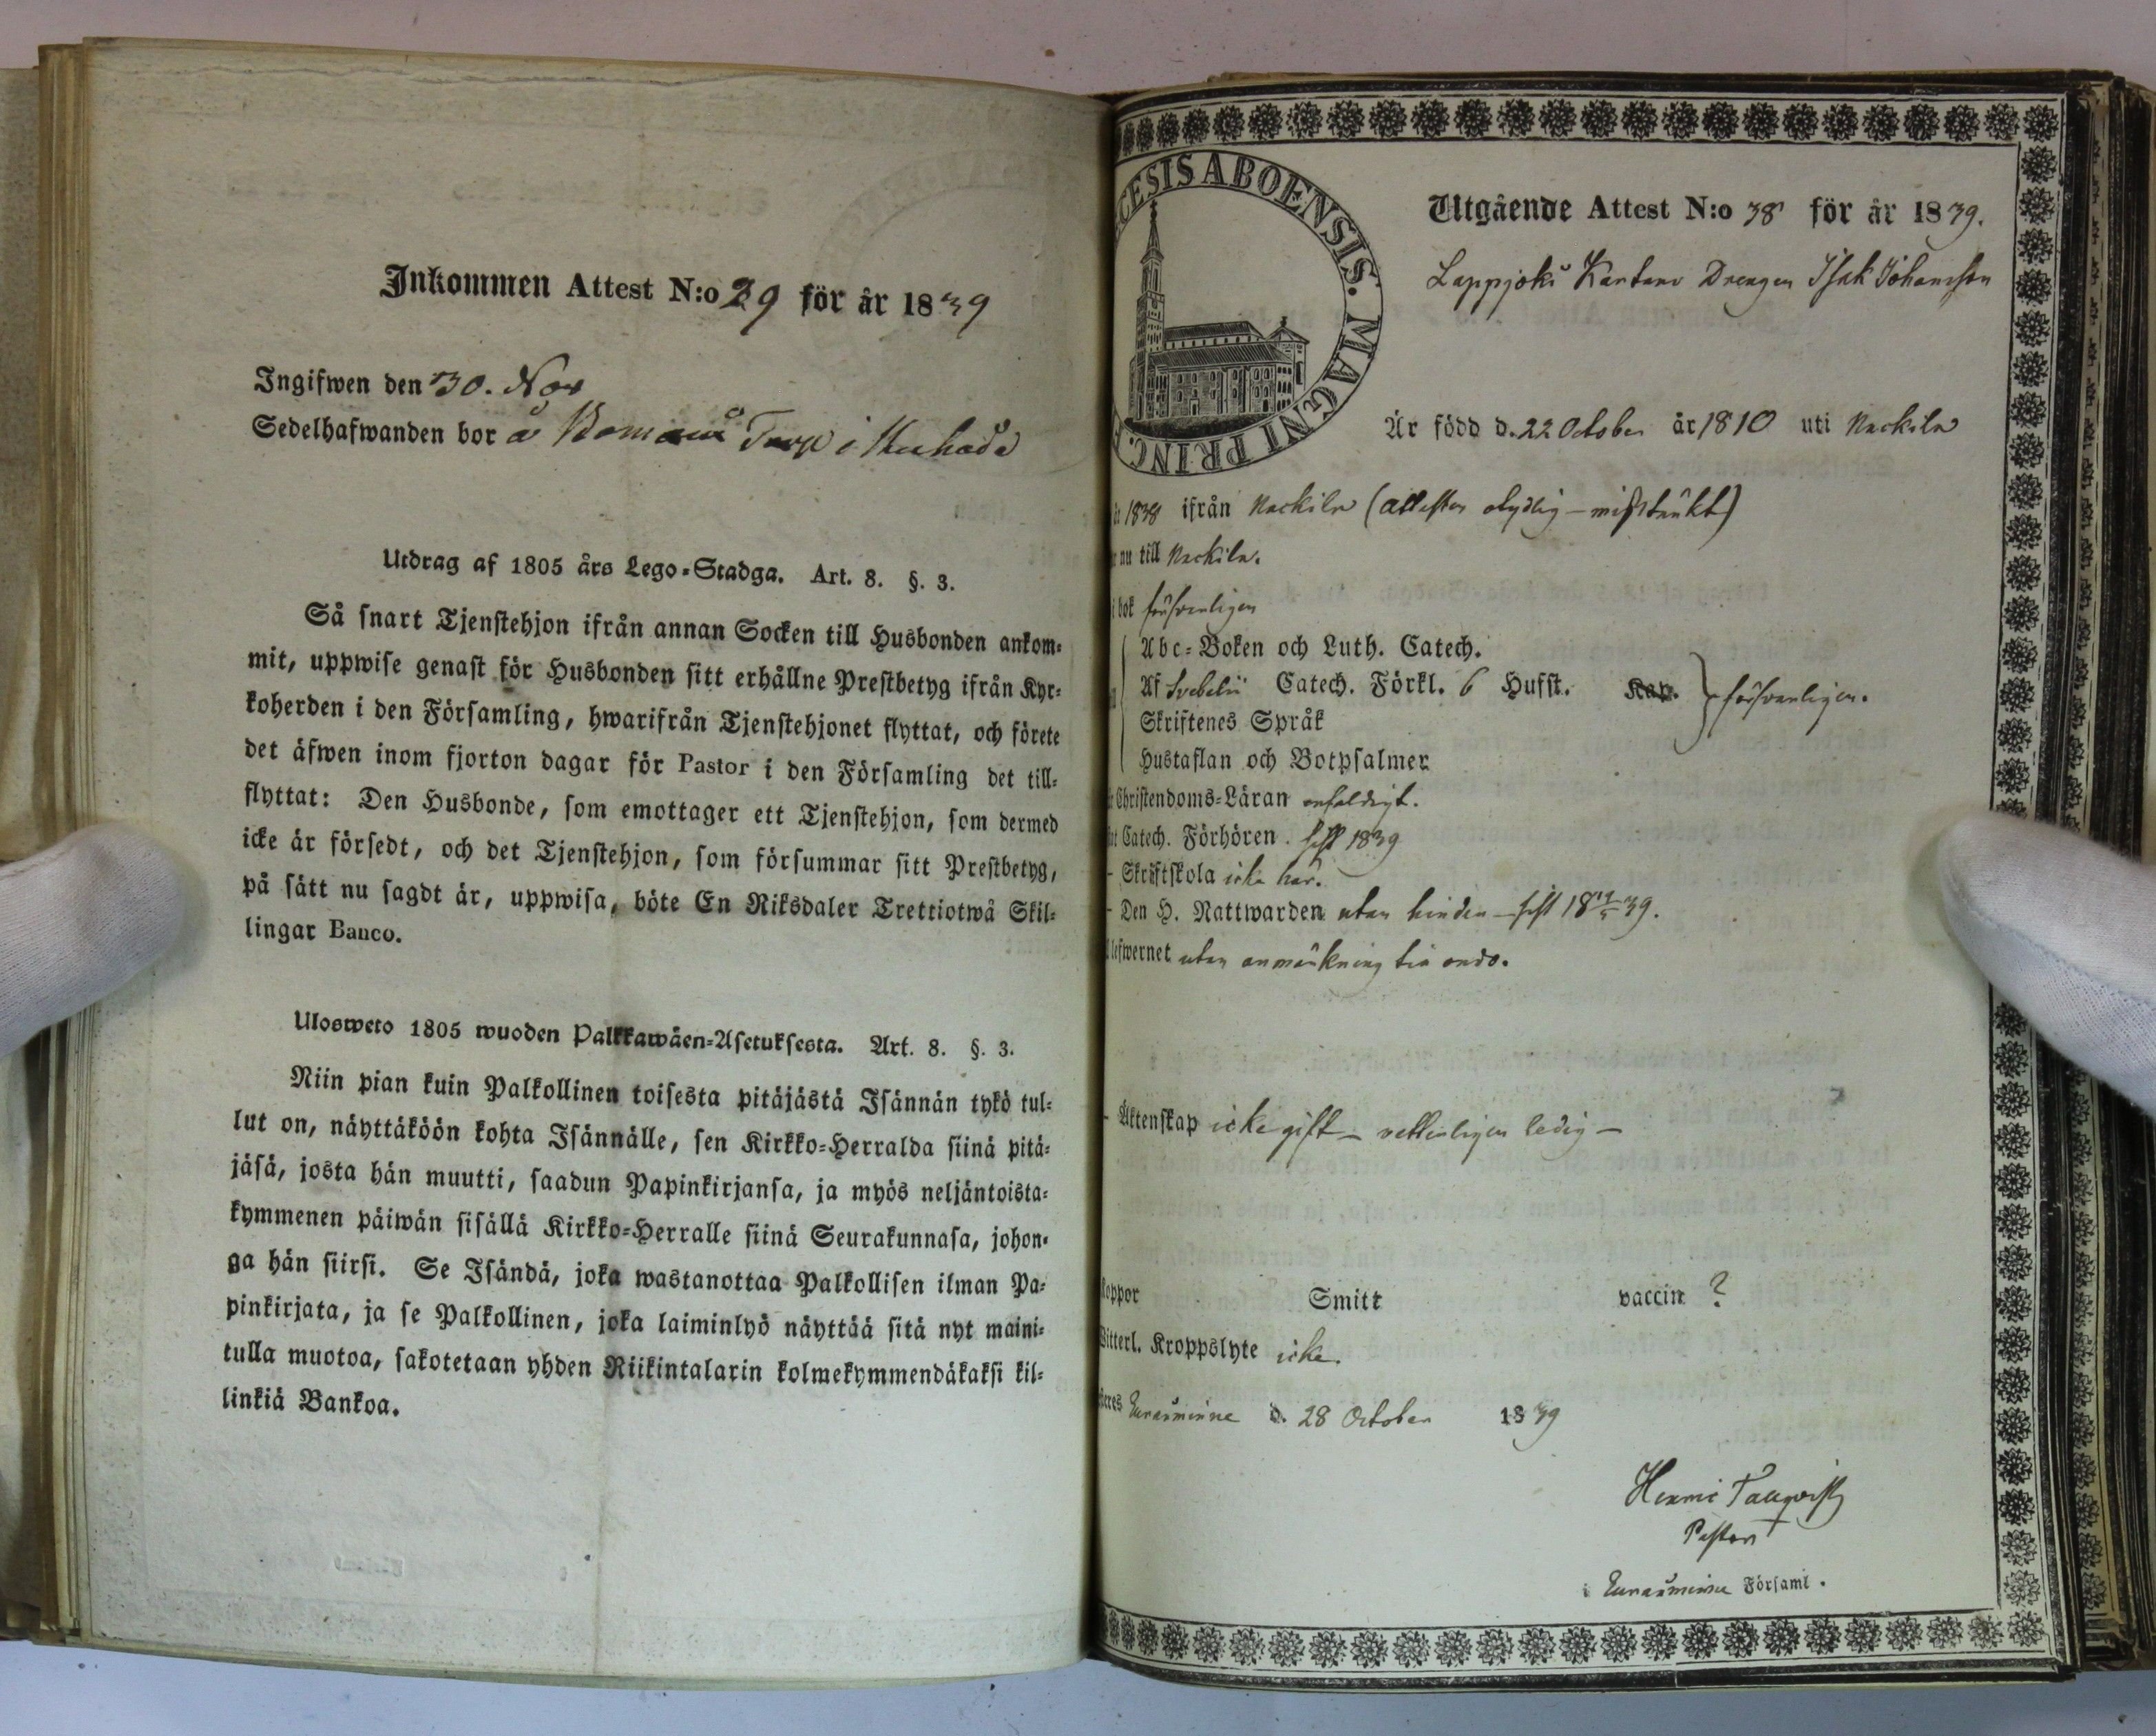 Inkommen Attest N:o 29 för år 1839
Ingifwen den 30. Nov
Sedelhafwanden bor å Torp i
Utdrag af 1805 års Lego-Stadga. Art. 8. §. 3.
Så snart Tjenstehjon ifrån annan Socken till Husbonden ankom-
mit, uppwise genast för Husbonden sitt erhållne Prestbetyg ifrån Kyr-
koherden i den Församling, hwarifrån Tjenstehjonet flyttat, och förete
det äfwen inom fjorton dagar för Pastor i den Församling det till-
flyttat: Den Husbonde, som emottager ett Tjenstehjon, som dermed
icke är försedt, och det Tjenstehjon, som försummar sitt Prestbetyg,
på sätt nu sagdt är, uppwisa, böte En Riksdaler Trettiotwå Skil-
lingar Banco.
Ulosweto 1805 wuoden Palkkawäen-Asetuksesta. Art. 8. §. 3.
Niin pian kuin Palkollinen toisesta pitäjästä Isännän tykö tul-
lut on, näyttäköön kohta Isännälle, sen Kirkko-Herralda siinä pitä-
jäsä, josta hän muutti, saadun Papinkirjansa, ja myös neljäntoista-
kymmenen päiwän sisällä Kirkko-Herralle siinä Seurakunnasa, johon-
ga hän siirsi. Se Isändä, joka wastanottaa Palkollisen ilman Pa-
pinkirjata, ja se Palkollinen, joka laiminlyö näyttää sitä nyt maini-
tulla muotoa, sakotetaan yhden Riikintalarin kolmekymmendäkaksi kil-
linkiä Bankoa.
CESIS ABOENSIS. MAGNI PRINC.
Utgående Attest N:o 38 för år 1839.
Lappjoki Kartano Drengen Isak Johansson
Är född d. 22 October år 1810 uti Nackila
1838 ifrån Nackila (attesten otydlig - misstänkt)
nu till Nackila.
i bok försvarligen
Abc-Boken och Luth. Catech.
Af Svebelii Catech. Förkl. 6 Hufst. Kap. försvarligen.
Skriftenes Språk
Hustaflan och Botpsalmer
Christendoms-Läran enfaldigt.
Catech. Förhören sist 1839
- Skriftskola icke här.
- Den H. Nattwarden utan hinder - sist 18 39.
lefwernet utan anmärkning till ondo.
- Äktenskap icke gift - vetterligen ledig -
koppor Smitt vaccin ?
Witterl. Kroppslyte icke.
Euraåminne d. 28 October 1839
Henric Tallqvist
Pastor
i Euraåminne Församl.